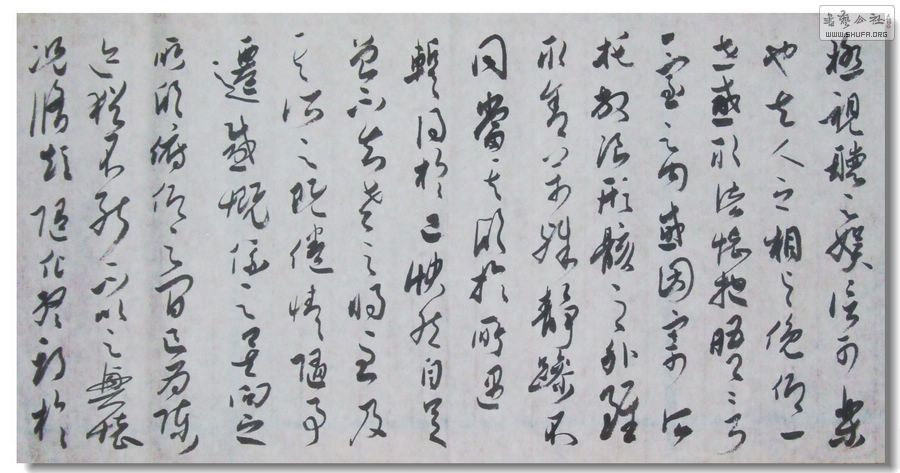 極視聽之娛信可樂
也夫人之相與俛仰一
世或取諸懷抱晤言
一室之內或因寄所
托放浪形骸之外雖
取舍萬殊靜躁不
同當其欣於所遇
暫得於己快然自足
曾不知老之將至及
其所之既倦情隨事
遷感慨係之矣向之
所欣俯仰之間已為陳
迹猶不能不以之興懷
況脩短隨化終期於
书艺公社
WWW.SHUFA.ORG